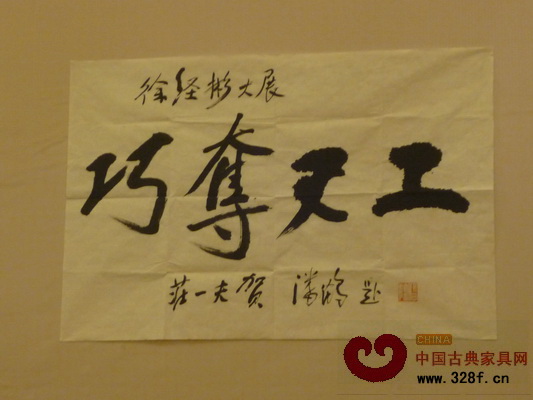 徐经彬大展
巧奪天工
莊一夫贺 潘鹤题
CHINA
中国古典家具网
www.328f.cn